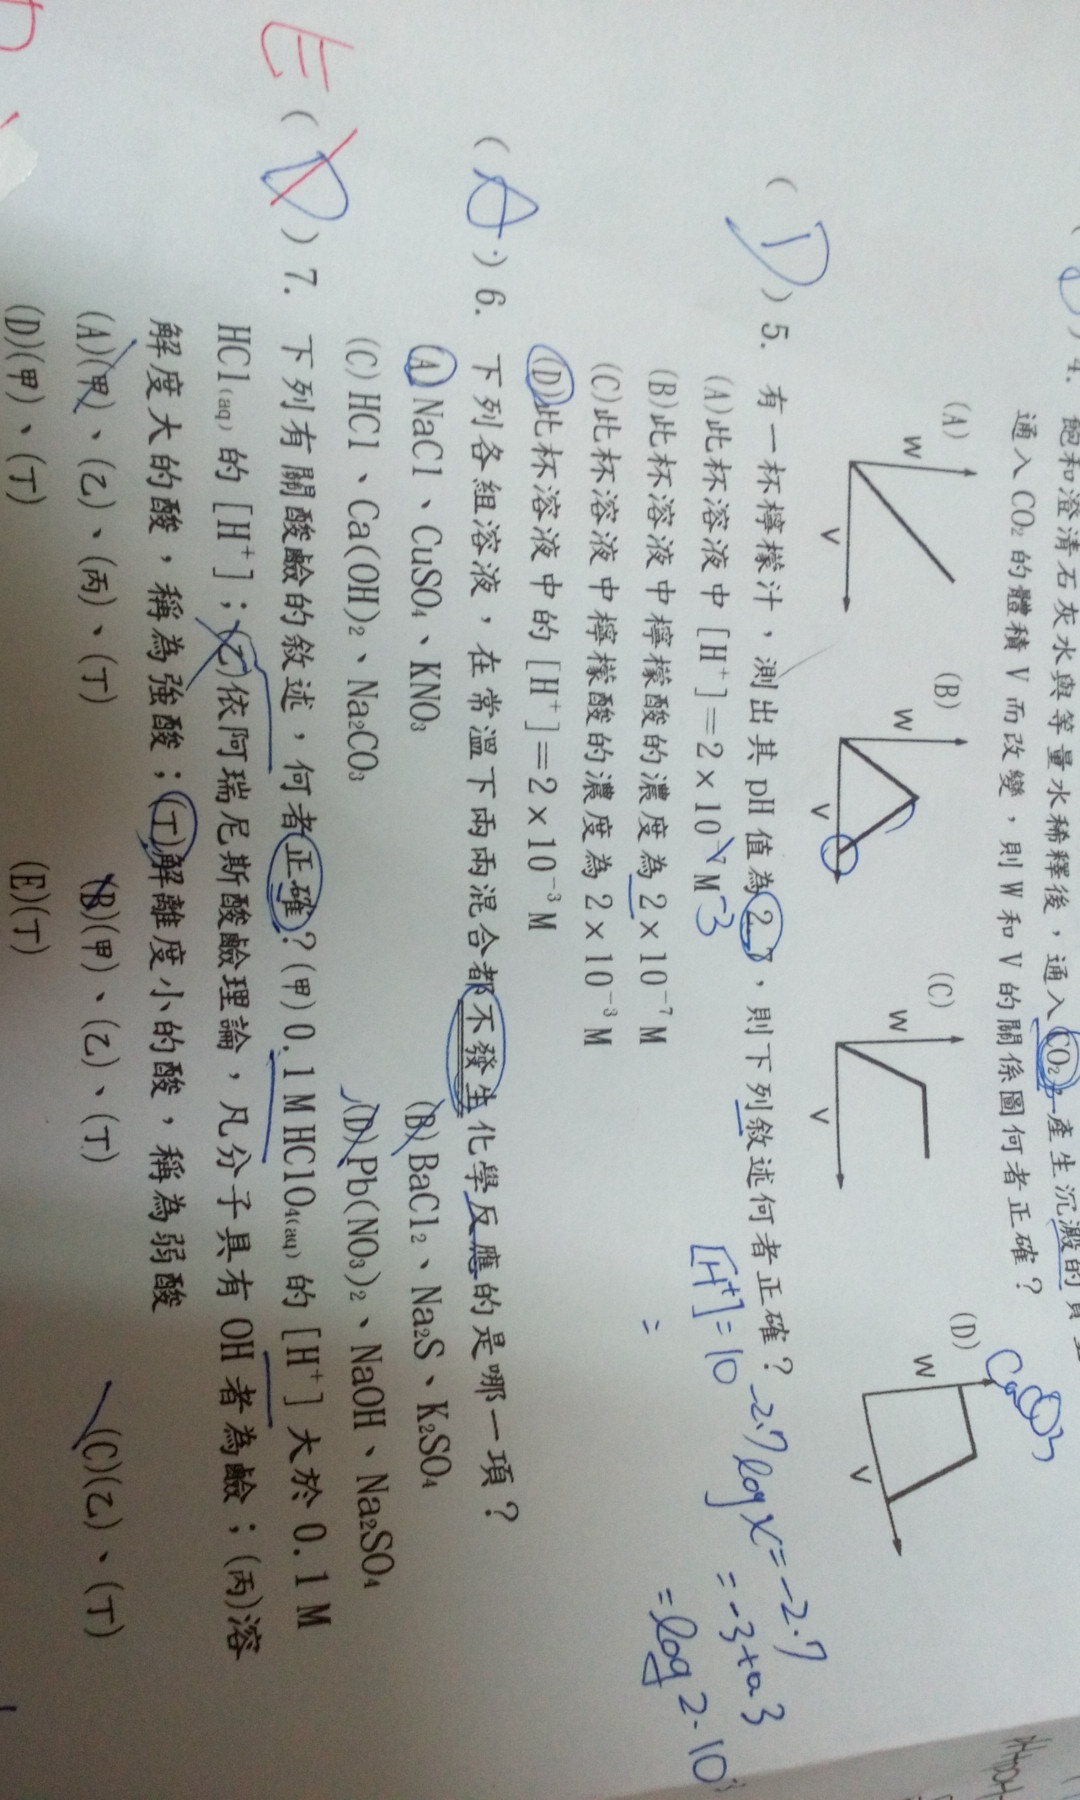 4. 飽和澄清石灰水與等量水稀釋後，通入CO₂產生沉澱的
通入CO₂的體積V而改變，則W和V的關係圖何者正確？
(A) (B) (C) (D)
W W W W
V V V V
CaCO3
(D) 5. 有一杯檸檬汁，測出其pH值為2.7，則下列敘述何者正確？
(A)此杯溶液中[H⁺]=2×10 M
-3
(B)此杯溶液中檸檬酸的濃度為2×10⁻⁷M
(C)此杯溶液中檸檬酸的濃度為2×10⁻³M
(D)此杯溶液中的[H⁺]=2×10⁻³M
[H⁺]=10^-2.7
=
log x=-2.7
=-3+0.3
=log2·10^-3
(A) 6. 下列各組溶液，在常溫下兩兩混合都不發生化學反應的是哪一項？
(A)NaCl、CuSO₄、KNO₃ (B)BaCl₂、Na₂S、K₂SO₄
(C)HCl、Ca(OH)₂、Na₂CO₃ (D)Pb(NO₃)₂、NaOH、Na₂SO₄
E (D) 7. 下列有關酸鹼的敘述，何者正確？(甲)0.1M HClO₄(aq)的[H⁺]大於0.1M
HCl(aq)的[H⁺]；(乙)依阿瑞尼斯酸鹼理論，凡分子具有OH者為鹼；(丙)溶
解度大的酸，稱為強酸；(丁)解離度小的酸，稱為弱酸
(A)(甲)、(乙)、(丙)、(丁) (B)(甲)、(乙)、(丁) (C)(乙)、(丁)
(D)(甲)、(丁) (E)(丁)